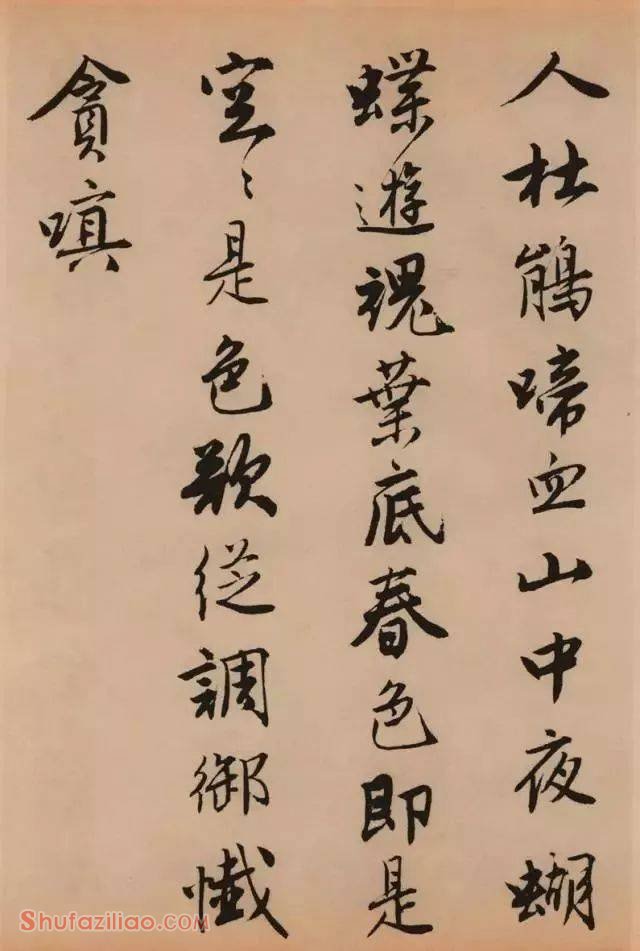 人杜鵑啼血山中夜蝴
蝶遊魂葉底春色即是
空〻是色欲從調御懺
貪嗔
Shufaziliao.com